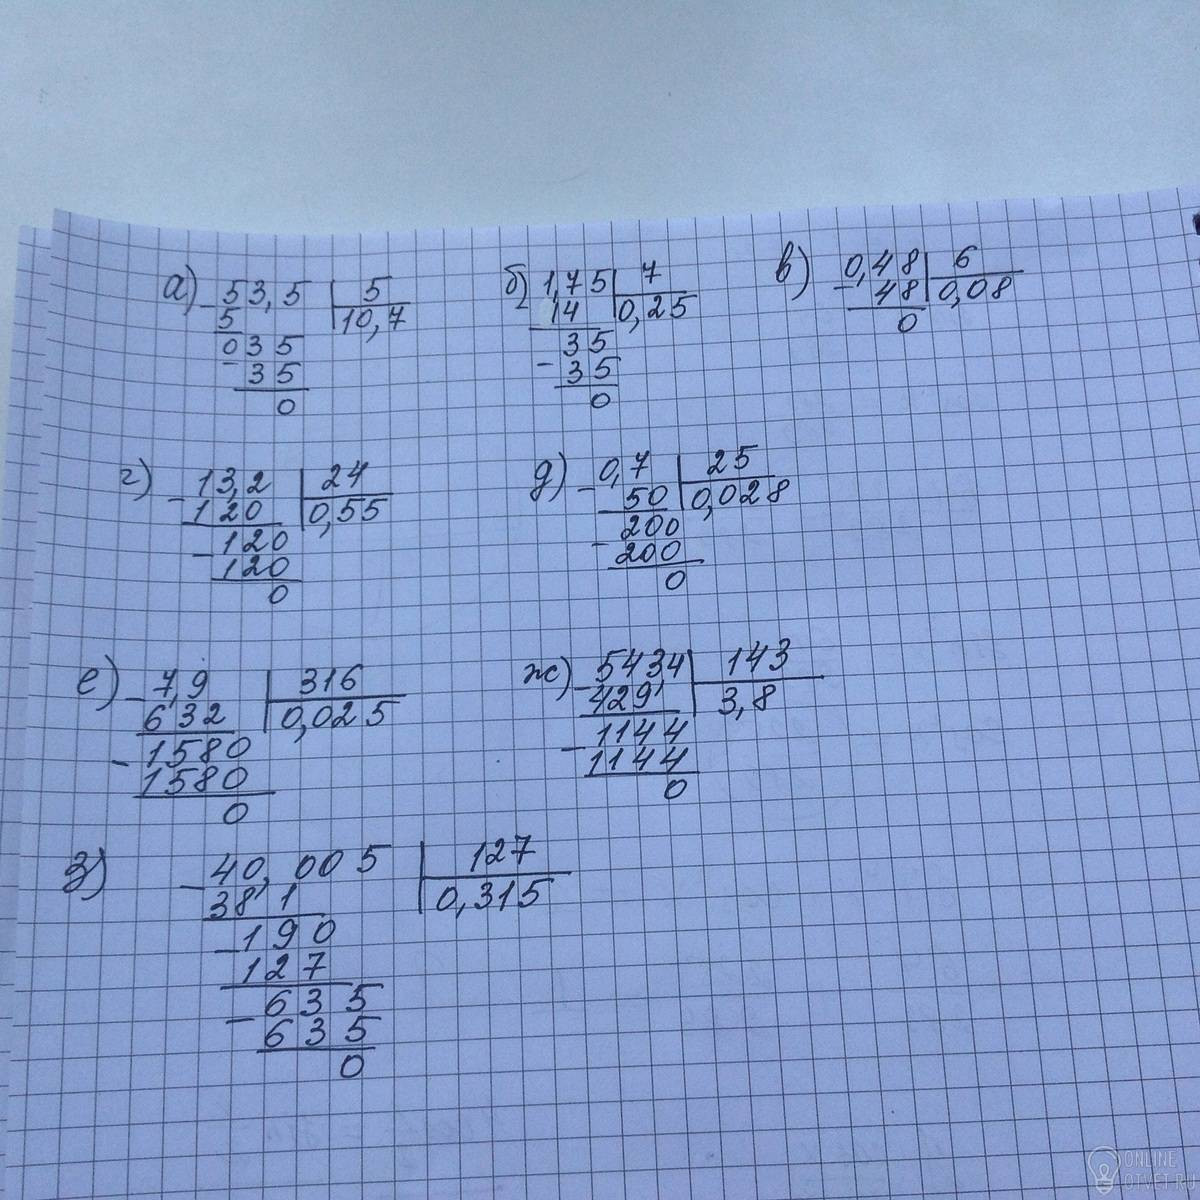 а) - 53,5 | 5
5 | 10,7
035
- 35
0
б) 1,75 | 7
- 14 | 0,25
35
- 35
0
в) 0,48 | 6
- 48 | 0,08
0
г) - 13,2 | 24
120 | 0,55
- 120
120
0
д) - 0,7 | 25
50 | 0,028
- 200
200
0
е) - 7,9 | 316
632 | 0,025
- 1580
1580
0
ж) - 5434 | 143
429 | 3,8
- 1144
1144
0
з) - 40,005 | 127
381 | 0,315
- 190
127
- 635
635
0
ONLINE
OTVET.RU